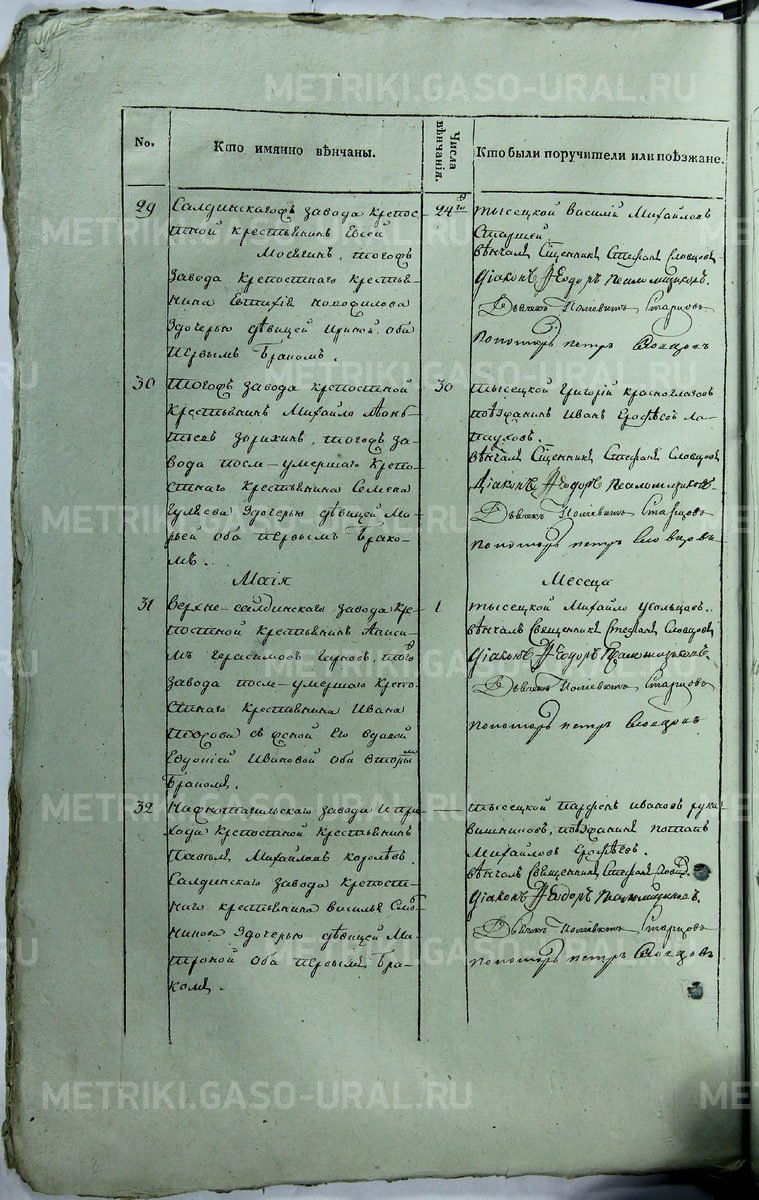 METRIKI.GASO-URAL.RU
No.
Кто имянно вѣнчаны.
Числа вѣнчанія.
Кто были поручители или поѣзжане.
29
Салдинскагожъ завода крепос-
тной крестьянинъ Евсей
Мосягинъ, тогожъ
завода крепостнаго крестья-
нина
здочерью дѣвицей Ириной оба
первымъ бракомъ.
24го
тысецкой Василій Михайловъ
Старшей
вѣнчалъ Сщенникъ Стефанъ Словцовъ
Діаконъ Ѳеодоръ Псаломщиковъ.
Дьячекъ Старцовъ
Пономарь Петръ Словцовъ
30
тогожъ завода крепостной
крестьянинъ Михайло Леонь-
тьевъ Зорихинъ, тогожъ за-
вода после умершаго крепо-
стнаго крестьянина Семена
Гуляева здочерью дѣвицей Ма-
рьей оба первымъ брако-
мъ.
30
тысецкой Григорій Красноглазовъ
поѣзжанинъ Иванъ Ерофѣевъ Ла-
пуховъ.
вѣнчалъ Сщенникъ Стефанъ Словцовъ
Діаконъ Ѳеодоръ Псаломщиковъ
Дьячекъ Старцовъ
Пономарь Петръ Словцовъ
Маія
Месеца
31
Верхне-салдинскаго завода кре-
постной крестьянинъ Аниси-
мъ Герасимовъ тогожъ
завода после умершаго крепо-
стнаго крестьянина Ивана
съ женой его вдовой
Евдокіей Ивановой оба вторымъ
бракомъ.
1
тысецкой Михайло Усольцовъ.
вѣнчалъ Священникъ Стефанъ Словцовъ
Діаконъ Ѳеодоръ Псаломщиковъ
Дьячекъ Старцовъ
Пономарь Петръ Словцовъ
32
Нижнотагильскаго завода и при-
хода крепостной крестьянинъ
Павелъ Михайловъ Королѣвъ.
Салдинскаго завода крепост-
наго крестьянина Василья
здочерью дѣвицей Ма-
троной оба первымъ бра-
комъ.
тысецкой Парфенъ Ивановъ Рука-
вишниковъ, поѣзжанинъ Потапъ
Михайловъ Ерофѣевъ.
вѣнчалъ Священникъ Стефанъ Словц.
Діаконъ Ѳеодоръ Псаломщиковъ.
Дьячекъ Старцовъ
Пономарь Петръ Словцовъ